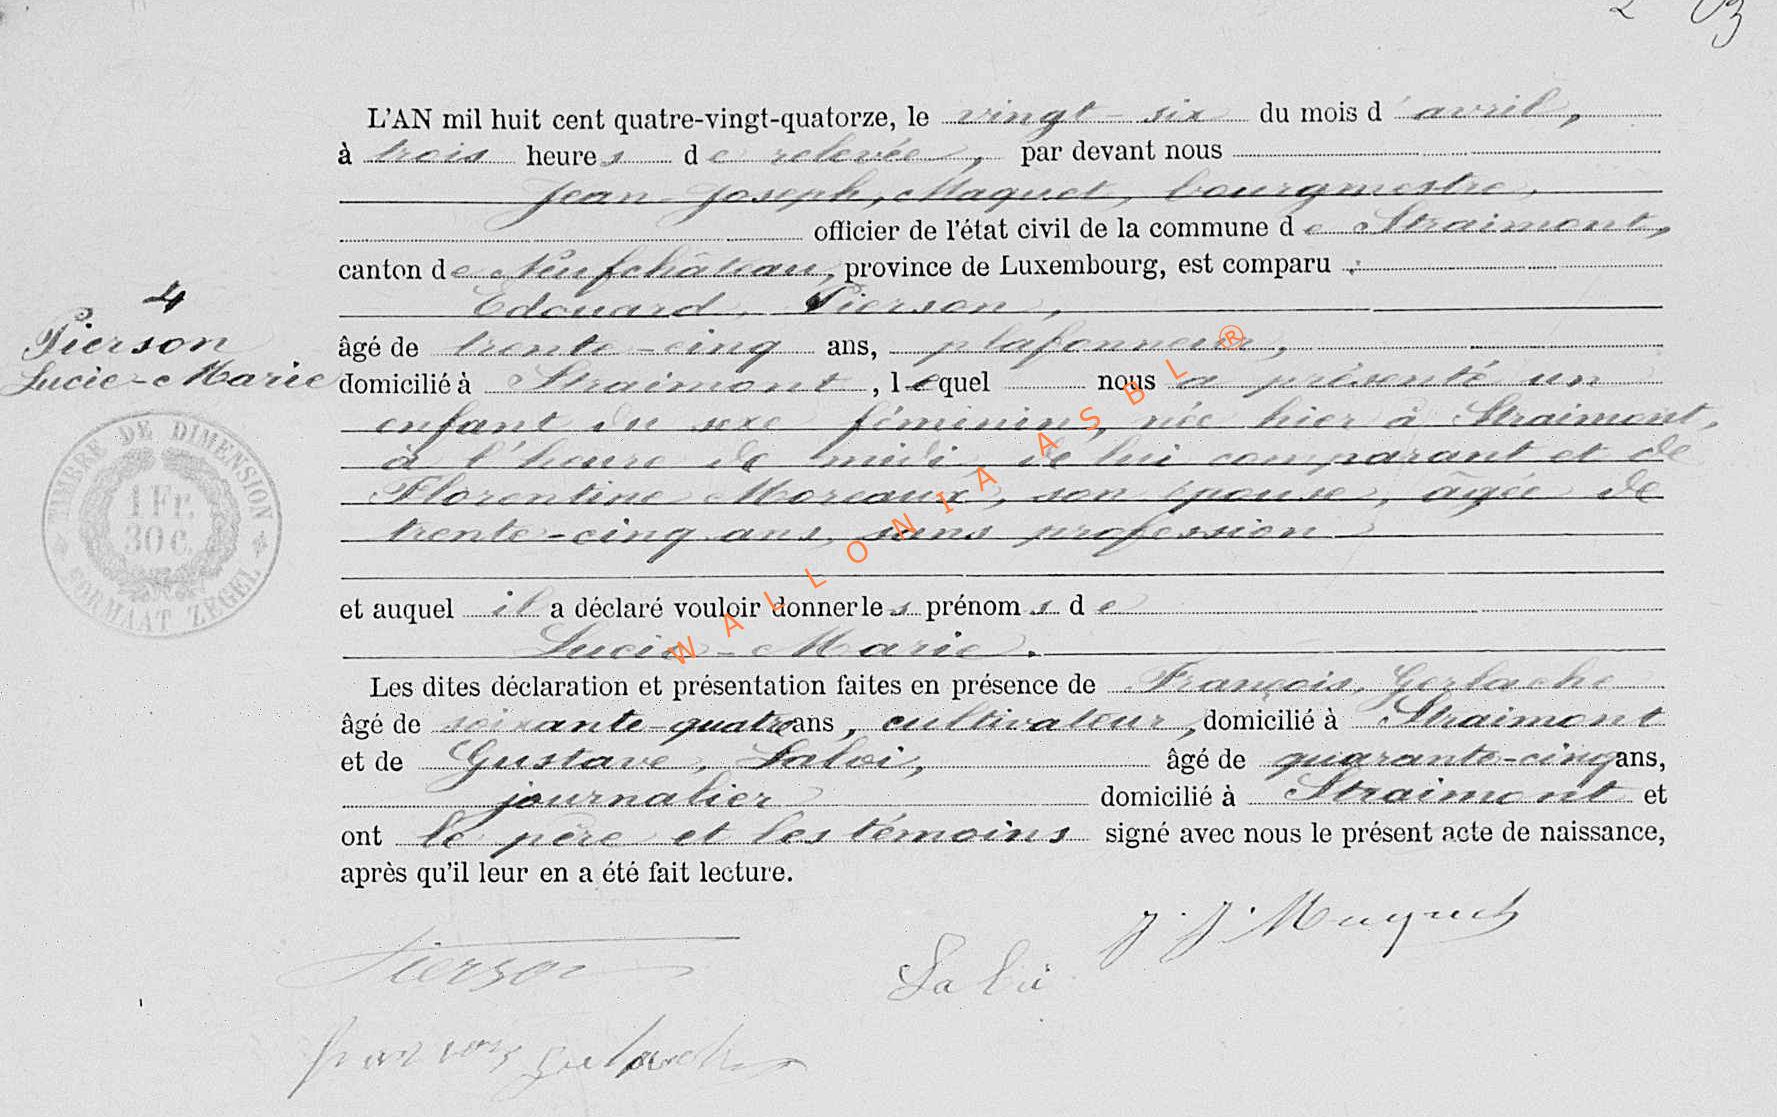 L'AN mil huit cent quatre-vingt-quatorze, le vingt-six du mois d'avril,
à trois heures de relevée, par devant nous
Jean Joseph, Maquet, bourgmestre,
officier de l'état civil de la commune de Straimont,
canton de Neufchâteau, province de Luxembourg, est comparu :
Edouard, Pierson,
4
Pierson
Lucie-Marie
âgé de trente-cinq ans, plafonneur,
domicilié à Straimont, lequel nous a présenté un
enfant du sexe féminin, née hier à Straimont,
à l'heure de midi, de lui comparant et de
Florentine Moreaux, son épouse, âgée de
trente-cinq ans, sans profession
TIMBRE DE DIMENSION
1 Fr.
30 C.
FORMAAT ZEGEL
et auquel il a déclaré vouloir donner les prénoms de
Lucie-Marie.
Les dites déclaration et présentation faites en présence de François, Gerlache
âgé de soixante-quatre ans, cultivateur, domicilié à Straimont
et de Gustave, Saloi, âgé de quarante-cinq ans,
journalier domicilié à Straimont et
ont le père et les témoins signé avec nous le présent acte de naissance,
après qu'il leur en a été fait lecture.
J. J. Maquet
Pierson
WALLONIA ASBL ®